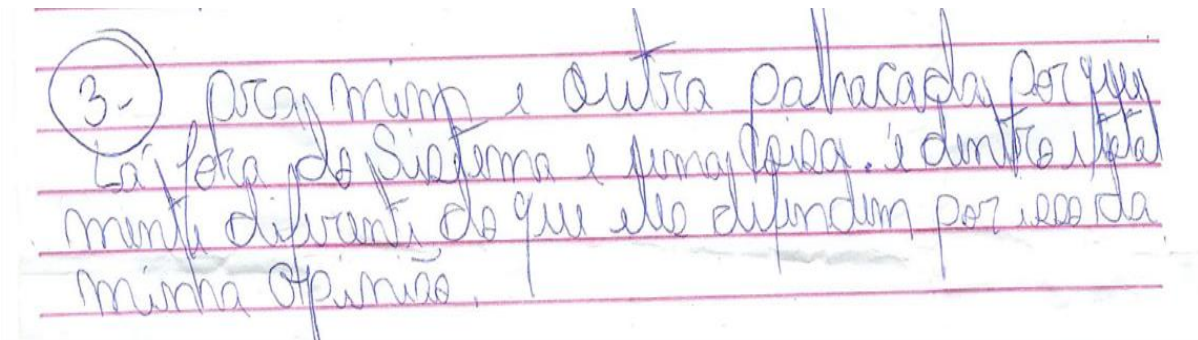 3- pra mim e outra palhacada por que
Lá fora do Sistema e uma coisa. é dentro e total
mente diferente do que eles defendem por isso da
minha opinião.